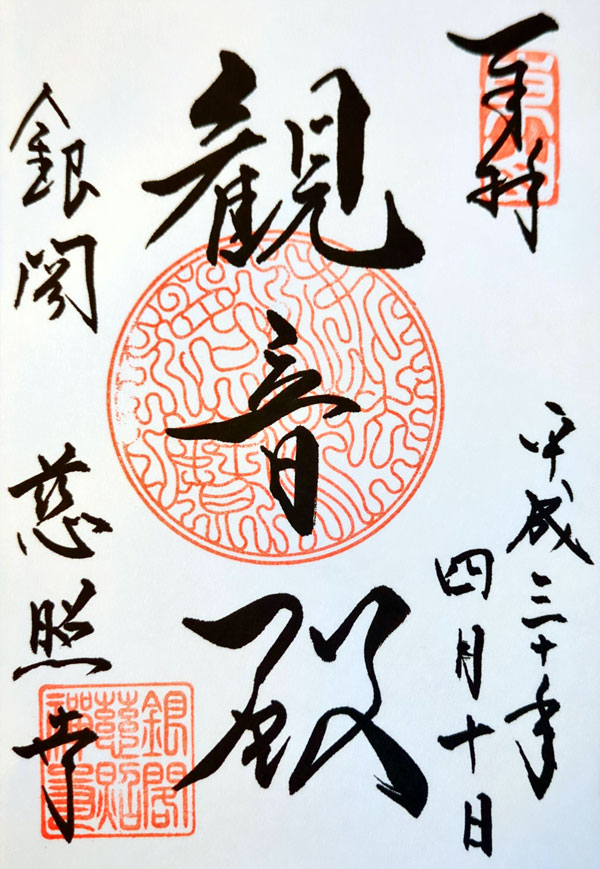 奉拝
平成三十年
四月十日
観音殿
銀閣 慈照寺
銀閣
慈照
禅寺